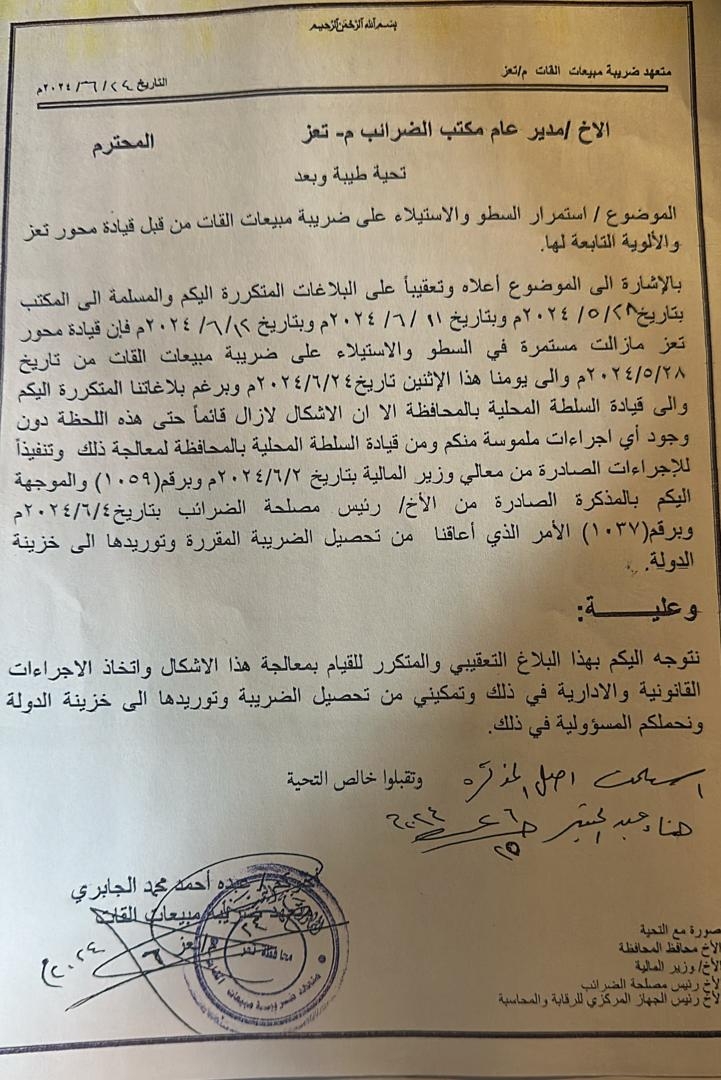 بسم الله الرحمن الرحيم
متعهد ضريبة مبيعات القات م/تعز
التاريخ ٢٤/٦/٢٠٢٤م
الاخ /مدير عام مكتب الضرائب م- تعز المحترم
تحية طيبة وبعد
الموضوع / استمرار السطو والاستيلاء على ضريبة مبيعات القات من قبل قيادة محور تعز
والألوية التابعة لها.
بالإشارة الى الموضوع أعلاه وتعقيباً على البلاغات المتكررة اليكم والمسلمة الى المكتب
بتاريخ ٢٨/٥/٢٠٢٤م وبتاريخ ١١/٦/٢٠٢٤م وبتاريخ ١٢/٦/٢٠٢٤م فإن قيادة محور
تعز مازالت مستمرة في السطو والاستيلاء على ضريبة مبيعات القات من تاريخ
٢٠٢٤/٥/٢٨م والى يومنا هذا الإثنين تاريخ٢٠٢٤/٦/٢٤م وبرغم بلاغاتنا المتكررة اليكم
والى قيادة السلطة المحلية بالمحافظة الا ان الاشكال لازال قائماً حتى هذه اللحظة دون
وجود أي اجراءات ملموسة منكم ومن قيادة السلطة المحلية بالمحافظة لمعالجة ذلك وتنفيذاً
للإجراءات الصادرة من معالي وزير المالية بتاريخ ٢٠٢٤/٦/٢م وبرقم(١٠٥٩) والموجهة
اليكم بالمذكرة الصادرة من الأخ/ رئيس مصلحة الضرائب بتاريخ٢٠٢٤/٦/٤م
وبرقم(١٠٣٧) الأمر الذي أعاقنا من تحصيل الضريبة المقررة وتوريدها الى خزينة
الدولة.
وعليـــــــة:
نتوجه اليكم بهذا البلاغ التعقيبي والمتكرر للقيام بمعالجة هذا الاشكال واتخاذ الاجراءات
القانونية والادارية في ذلك وتمكيني من تحصيل الضريبة وتوريدها الى خزينة الدولة
ونحملكم المسؤولية في ذلك.
وتقبلوا خالص التحية
استلمت اصل المذكره
هناء عبد
٢٥ ٦ ٢٠٢٤
عبده أحمد محمد الجابري
متعهد ضريبة مبيعات القات
م/تعز
٦ ٢٠٢٤م
محافظة تعز
صورة مع التحية
الأخ محافظ المحافظة
الأخ/ وزير المالية
الأخ رئيس مصلحة الضرائب
الأخ رئيس الجهاز المركزي للرقابة والمحاسبة